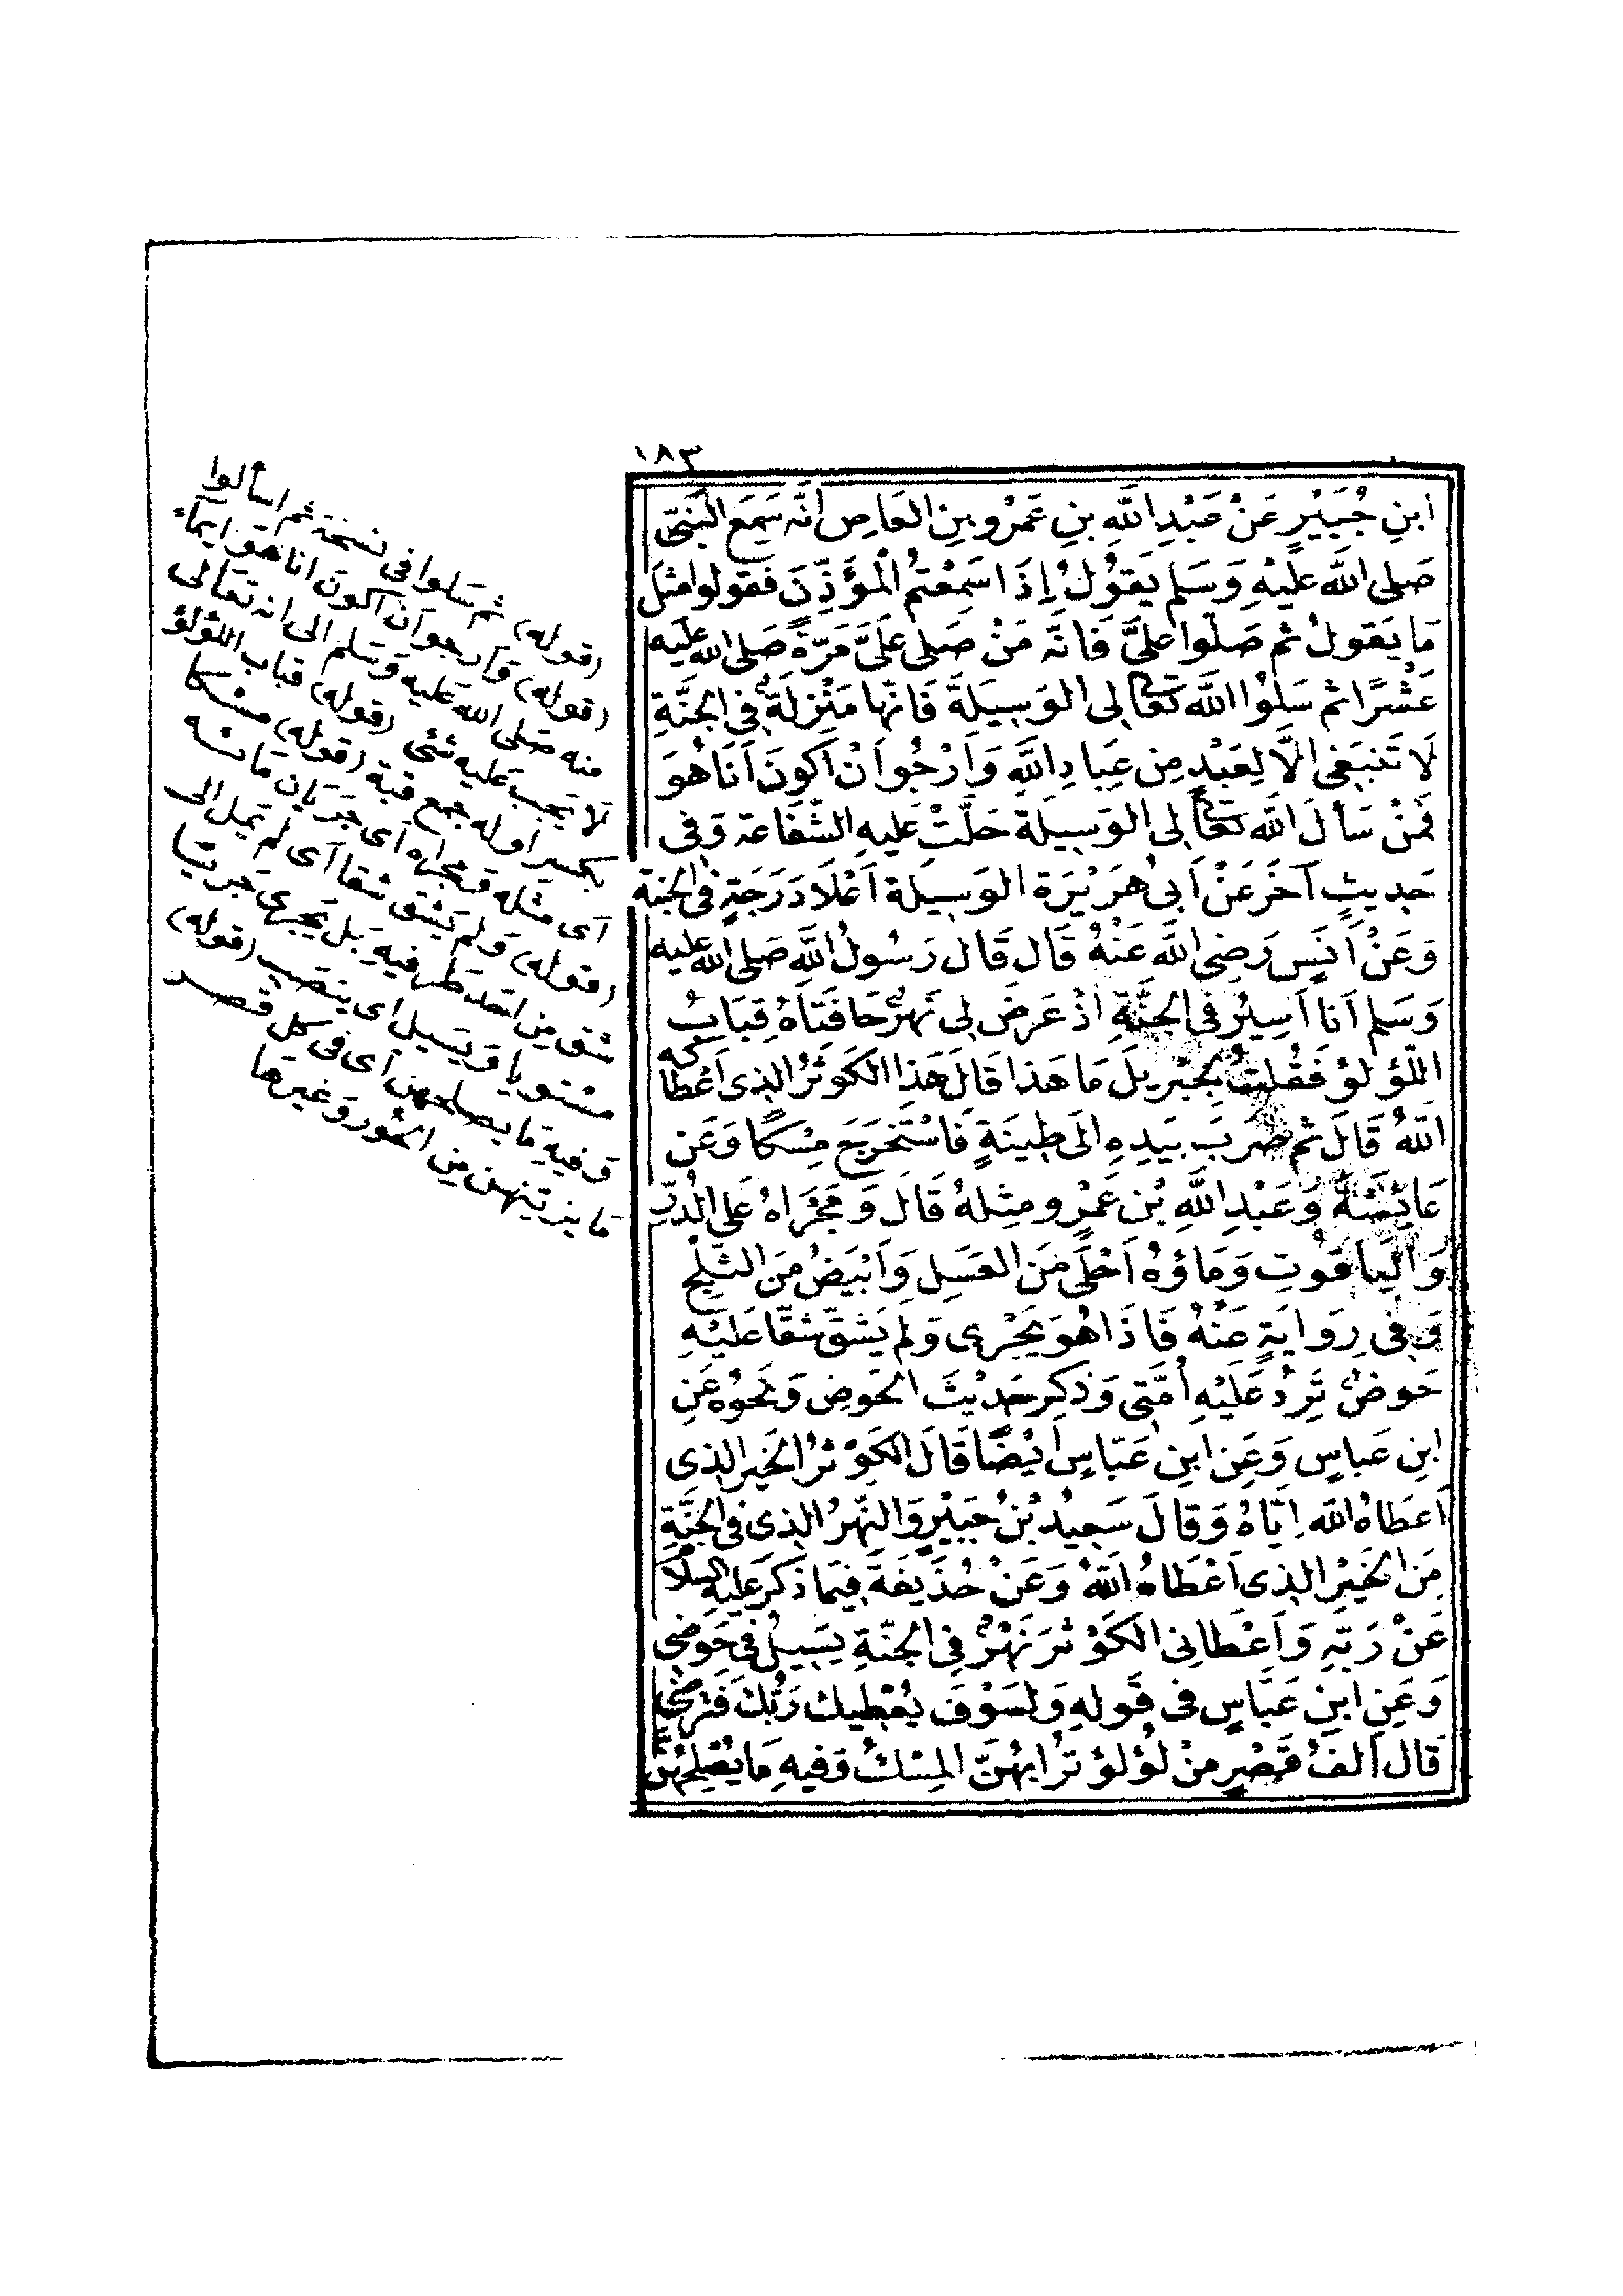 ١٨٣
ابنِ جُبَيْرٍ عَنْ عَبْدِ اللَّهِ بنِ عَمْرو بنِ العَاصِ أنَّه سَمِعَ النَّبيَّ
صَلى اللَّه عليْهِ وَسَلم يَقوُلُ إِذَا سَمِعْتمُ الْمؤَذِّنَ فقولوا مثلَ
مَا يَقولُ ثم صَلوا عليَّ فَانَّه مَنْ صَلى عَلَيَّ مَرّةً صَلى الله عليه
عَشْرًا ثم سَلوُا اللَّه تعَالى الوَسِيلَةَ فَانهَّا مَنْزِلَةٌ في الجَنَّةِ
لَا تَنبَغي الّا لِعَبْدٍ مِن عِبَادِ اللَّهِ وَأَرْجُوا أنْ أكونَ أنَا هُوَ
فَمنْ سَألَ اللَّه تعَالى الوَسِيلَة حَلَّتْ عَليهِ الشَّفَاعَة وَفي
حَدِيثٍ آخَرَ عَنْ أَبى هُرَيْرَة الوَسِيلَة أعْلَا دَرَجَةٍ في الجنة
وَعَنْ أَنَسٍ رَضِي اللَّه عَنْهُ قَال قَال رَسُولُ اللَّهِ صَلى الله عليه
وَسَلم أنا أسِيُر في الجَنَّةِ اذْ عَرَضَ لي نَهرٌ حَافَتَاهُ قِبَابُ
اللّؤلؤ فَقُلتُ لِجبْريلَ مَا هَذا قَالَ هَذَا الكَوثَرُ الذي أعْطَاكه
اللَّهُ قَالَ ثم ضَرَبَ بيَدِهِ الَى طِينَةٍ فَاسْتَخرَجَ مِسْكًا وَعَن
عَائِشَةَ وَعَبْدِ اللَّهِ بْن عَمْرٍو مِثلهُ قَالَ وَمَجْرَاهُ عَلى الدُّرِّ
وَالْيَاقوُتِ وَمَاؤهُ أَحْلَى مَن العَسَلِ وَأبْيَضُ مَن الثَّلِج
وَفي رِوَايَةٍ عَنْهُ فَاذَا هُوَ يَجْري وَلم يَشقَّ شَقّا عَلَيْهِ
حَوضٌ تَرِدُ عَلَيْهِ أُمَّتي وَذكِر حَديثَ الحَوضِ وَنَحْوُه عَنِ
ابنِ عَباسٍ وَعَن ابنِ عَبّاسٍ أيْضًا قَالَ الكَوْثَرُ الخَير الذِي
أَعطاهُ اللَّه اِيّاهُ وَقالَ سَعِيدُ بْنُ جُبَيْرٍ وَالنّهرُ الذي في الجَنَّةِ
مِنَ الخَيْرِ الذي أعْطَاهُ اللَّهُ وَعَنْ حُذَيفَةَ فِيمَا ذَكَر عَليْهِ السلام
عَنْ رَبّهِ وَأَعْطانِى الكَوْثَرَ نَهْرٌ فِي الجَنّةِ يَسِيلُ في حَوضِي
وَعَنِ ابنِ عَبَّاسٍ في قَولهِ وَلَسَوْفَ يُعْطِيك رَبُّكَ فَترضَى
قَال ألفُ قَصْرٍ مِنْ لُؤلؤٍ تُرَابهُنَّ المِسْكُ وَفيهِ مَا يُصْلِحُهُنَّ
(قوله) ثم سَلوا في نسخة ثم اسألوا
(قوله) وَأرجوا أن أكون انا هو ايماء
منه صَلى الله عَليه وَسَلم الى انه تعَالى
لا يَجب عَليه شئ (قوله) قباب اللؤلؤ
بكسر أوله جمع قبة (قوله) مسكا
أى مثله وَمجراه أى جَرَيان مَائه
(قوله) وَلم يَشق شقا أى لم يَميل الى
شق مِن أحَد طرفيهِ بَل يَجرى جَريًا
مستويا وَيسيل اى ينصَب (قوله)
وَفيهِ مَا يصلحهن أى في كل قصر
مَا يزينهن مِن الحُور وَغيرَها